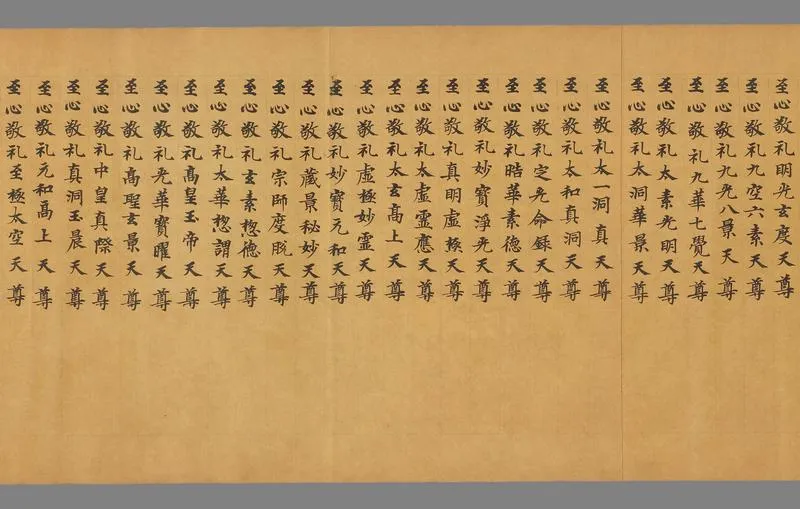 至心敬礼明光玄度天尊
至心敬礼九空六素天尊
至心敬礼九光八景天尊
至心敬礼九華七覺天尊
至心敬礼太素光明天尊
至心敬礼太洞華景天尊
至心敬礼太一洞真天尊
至心敬礼太和真洞天尊
至心敬礼定光命録天尊
至心敬礼晧華素德天尊
至心敬礼妙寶淨光天尊
至心敬礼真明虛天尊
至心敬礼太虛霊應天尊
至心敬礼太玄髙上天尊
至心敬礼虛極妙霊天尊
至心敬礼妙寶元和天尊
至心敬礼藏景秘妙天尊
至心敬礼宗師度脱天尊
至心敬礼玄素惣德天尊
至心敬礼太華惣謂天尊
至心敬礼髙皇玉帝天尊
至心敬礼光華寶曜天尊
至心敬礼髙聖玄景天尊
至心敬礼中皇真際天尊
至心敬礼真洞玉晨天尊
至心敬礼元和髙上天尊
至心敬礼至極太空天尊